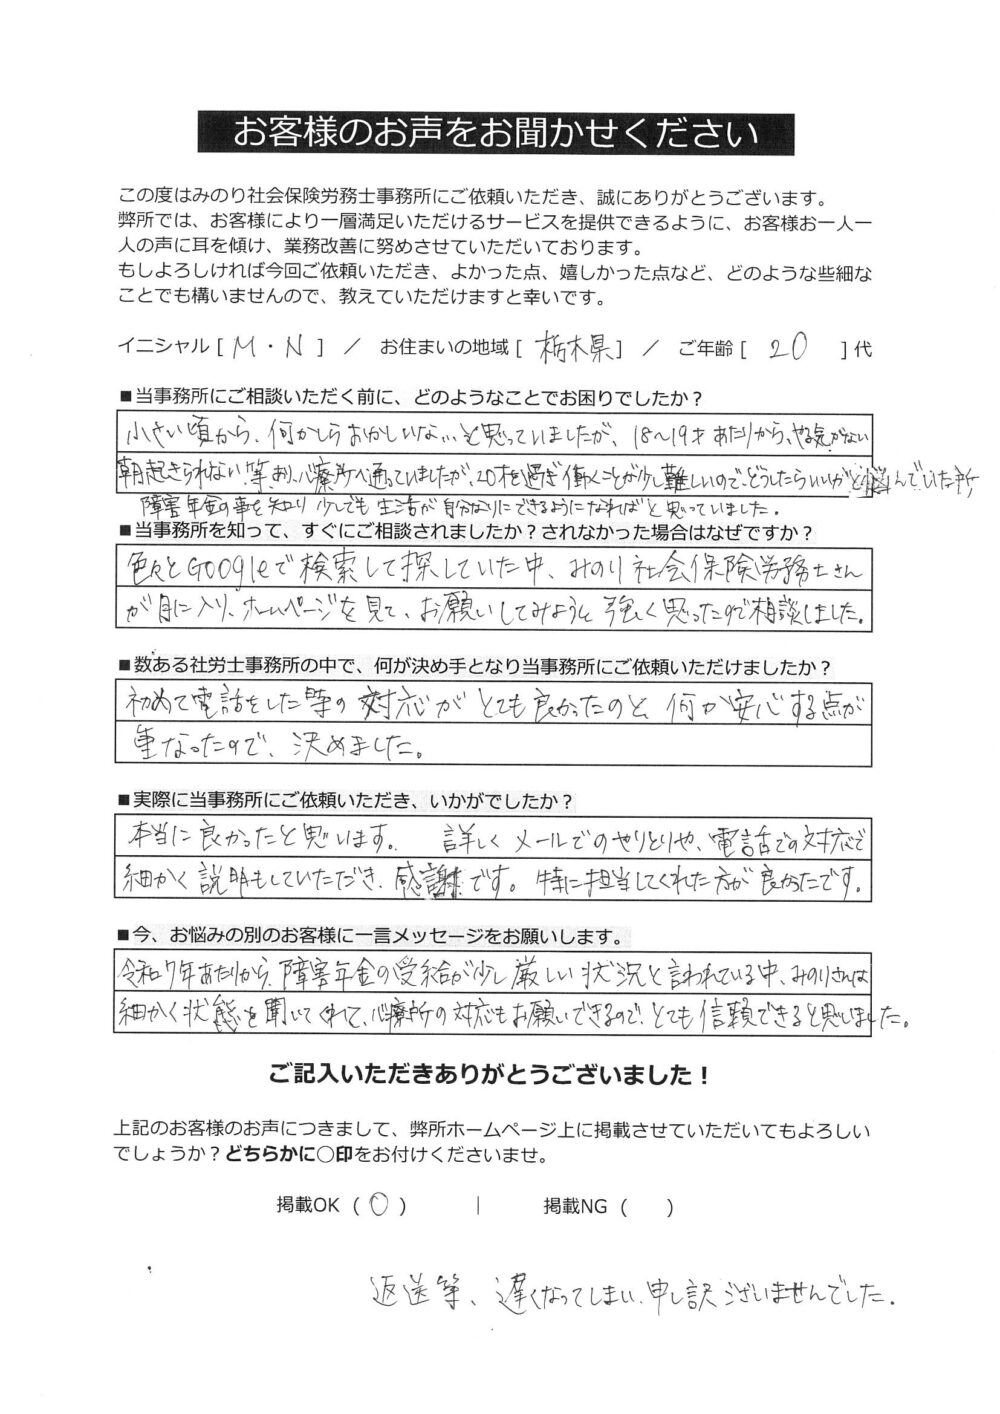 お客様のお声をお聞かせください
この度はみのり社会保険労務士事務所にご依頼いただき、誠にありがとうございます。
弊所では、お客様により一層満足いただけるサービスを提供できるように、お客様お一人一
人の声に耳を傾け、業務改善に努めさせていただいております。
もしよろしければ今回ご依頼いただき、よかった点、嬉しかった点など、どのような些細な
ことでも構いませんので、教えていただけますと幸いです。
イニシャル [ M・N ] ／ お住まいの地域 [ 栃木県 ] ／ ご年齢 [ 20 ] 代
■当事務所にご相談いただく前に、どのようなことでお困りでしたか？
小さい頃から、何かしらおかしいな…と思っていましたが、18〜19才あたりから、やる気がない
朝起きられない等あり、心療所へ通っていましたが、20才を過ぎ働くことが少し難しいので、どうしたらいいかと悩んでいた所
障害年金の事を知り少しでも生活が自分なりにできるようになればと思っていました。
■当事務所を知って、すぐにご相談されましたか？されなかった場合はなぜですか？
色々とGoogleで検索して探していた中、みのり社会保険労務士さん
が目に入り、ホームページを見て、お願いしてみようと強く思ったので相談しました。
■数ある社労士事務所の中で、何が決め手となり当事務所にご依頼いただけましたか？
初めて電話をした等の対応がとても良かったのと、何か安心する点が
重なったので、決めました。
■実際に当事務所にご依頼いただき、いかがでしたか？
本当に良かったと思います。 詳しくメールでのやりとりや、電話での対応で
細かく説明もしていただき、感謝です。特に担当してくれた方が良かったです。
■今、お悩みの別のお客様に一言メッセージをお願いします。
令和7年あたりから、障害年金の受給が少し厳しい状況と言われている中、みのりさんは
細かく状態を聞いてくれて、心療所の対応もお願いできるので、とても信頼できると思いました。
ご記入いただきありがとうございました！
上記のお客様のお声につきまして、弊所ホームページ上に掲載させていただいてもよろしい
でしょうか？どちらかに〇印をお付けくださいませ。
掲載OK （ 〇 ） ｜ 掲載NG （ ）
返送等、遅くなってしまい、申し訳ございませんでした。